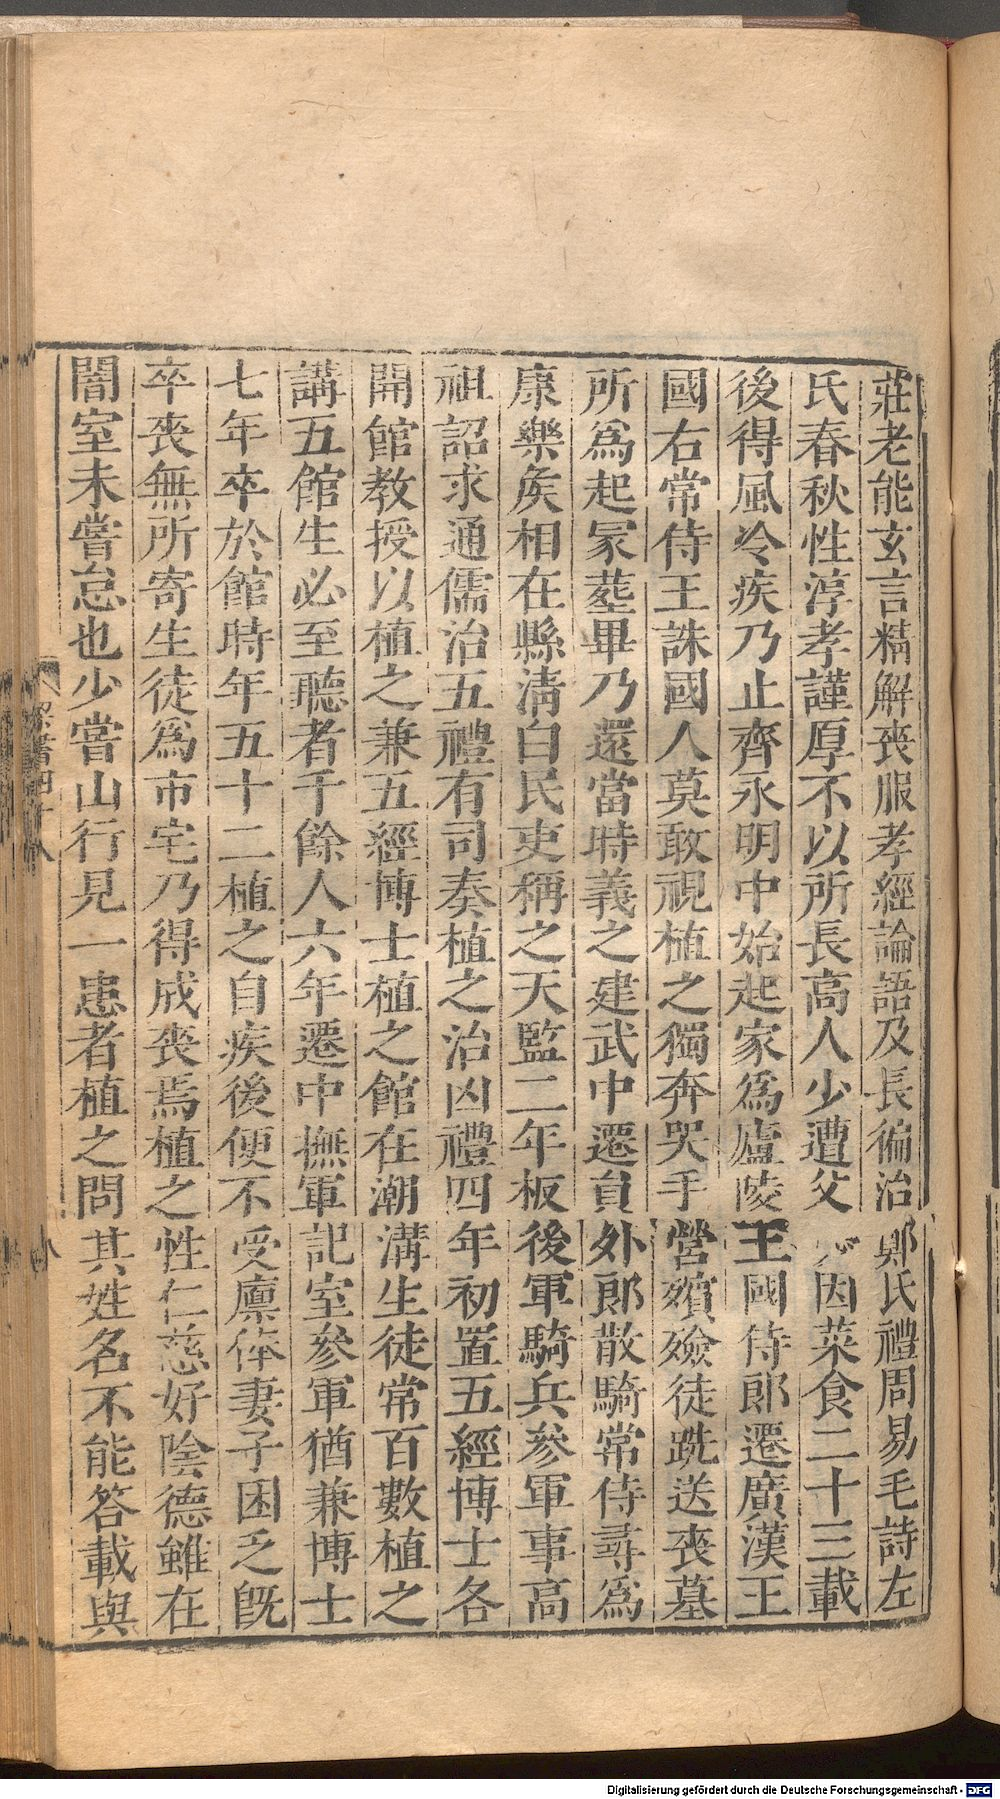 莊老能玄言精解喪服孝經論語及長徧治鄭氏禮周易毛詩左
氏春秋性淳孝謹厚不以所長高人少遭父憂因菜食二十三載
後得風冷疾乃止齊永明中始起家爲廬陵王國侍郎遷廣漢王
國右常侍王誅國人莫敢視植之獨奔哭手營殯殮徒跣送喪墓
所爲起冢葬畢乃還當時義之建武中遷員外郎散騎常侍尋爲
康樂矦相在縣淸白民吏稱之天監二年板後軍騎兵參軍事高
祖詔求通儒治五禮有司奏植之治凶禮四年初置五經博士各
開館教授以植之兼五經博士植之館在潮溝生徒常百數植之
講五館生必至聽者千餘人六年遷中撫軍記室參軍猶兼博士
七年卒於館時年五十二植之自疾後便不受廪俸妻子困乏旣
卒喪無所寄生徒爲市宅乃得成喪焉植之性仁慈好陰德雖在
闇室未嘗怠也少嘗山行見一患者植之問其姓名不能答載與
梁書四十八
八
Digitalisierung gefördert durch die Deutsche Forschungsgemeinschaft - DFG